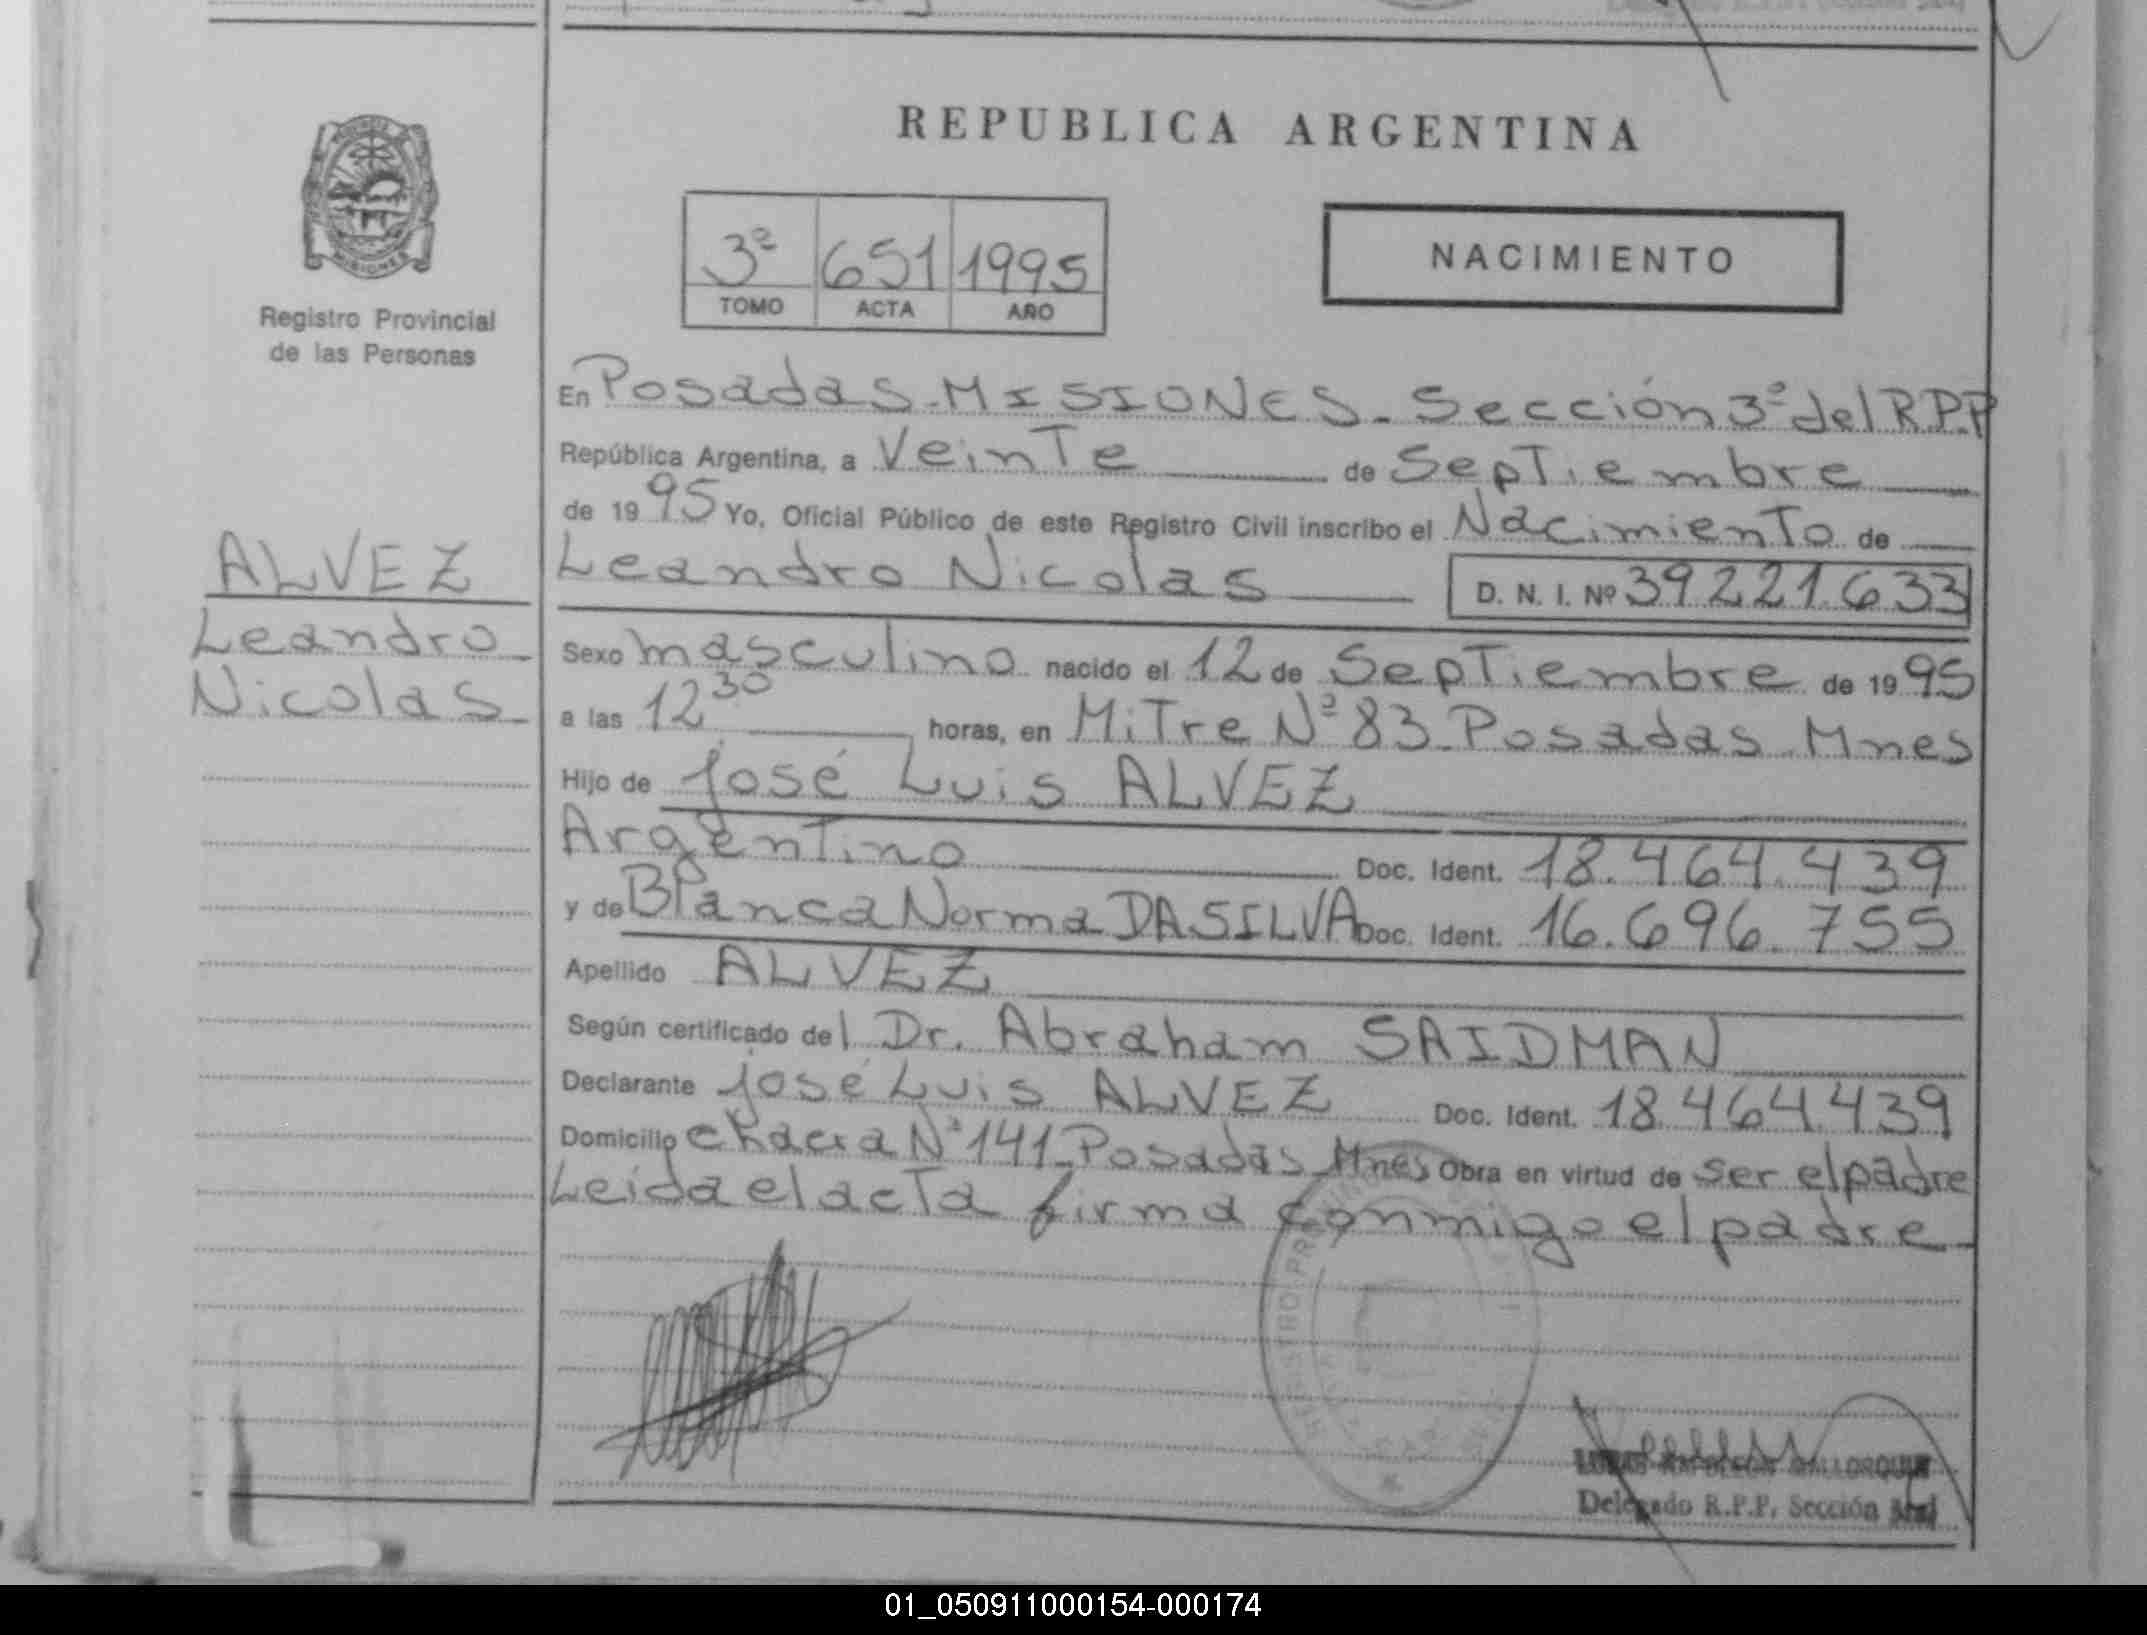 REPUBLICA ARGENTINA
PROVINCIA
MISIONES
Registro Provincial
de las Personas
3º 651 1995
TOMO ACTA AÑO
NACIMIENTO
En Posadas - MISIONES - Sección 3º del R.P.P
República Argentina, a Veinte de Septiembre
de 1995 Yo, Oficial Público de este Registro Civil inscribo el Nacimiento de
Leandro Nicolas D. N. I. Nº 39.221.633
ALVEZ
Leandro
Nicolas
Sexo masculino nacido el 12 de Septiembre de 1995
a las 12 30 horas, en Mitre Nº 83 - Posadas - Mnes
Hijo de José Luis ALVEZ
Argentino Doc. Ident. 18.464.439
y de Blanca Norma DA SILVA Doc. Ident. 16.696.755
Apellido ALVEZ
Según certificado del Dr. Abraham SAIDMAN
Declarante José Luis ALVEZ Doc. Ident. 18.464.439
Domicilio Chacra Nº 141 - Posadas - Mnes Obra en virtud de ser el padre
Leída el acta firma conmigo el padre
REGISTRO PROVINCIAL
Delegado R.P.P. Sección 3ra
01_050911000154-000174